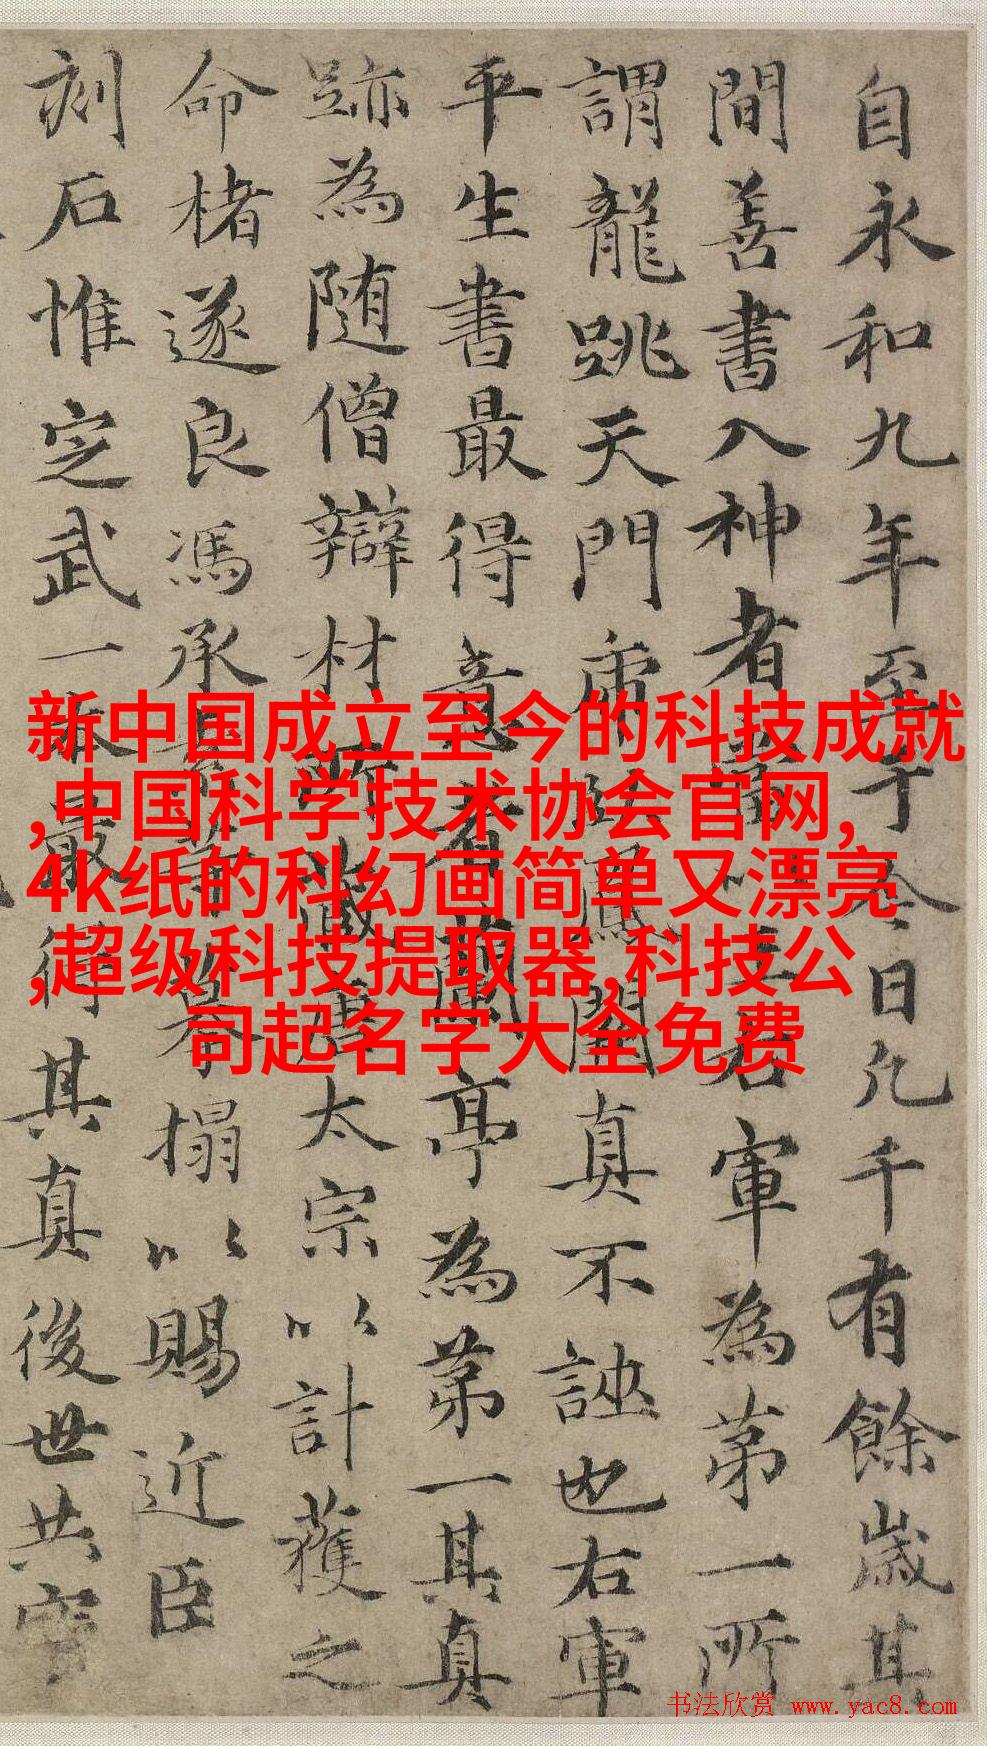 自永和九年至于今日凡千有餘歲其
間善書入神者以王右軍為第一所
謂龍跳天門虎卧鳳閣真不誣也右軍
平生書最得意者蘭亭為第一其真
跡為随僧辯材所藏唐太宗以計獲之
命楮遂良馮承搨以賜近臣
刻石惟定武一本最得其真後世共寶
新中国成立至今的科技成就
,中国科学技术协会官网,
4k纸的科幻画简单又漂亮
,超级科技提取器,科技公
司起名字大全免费
书法欣赏 www.yac8.com